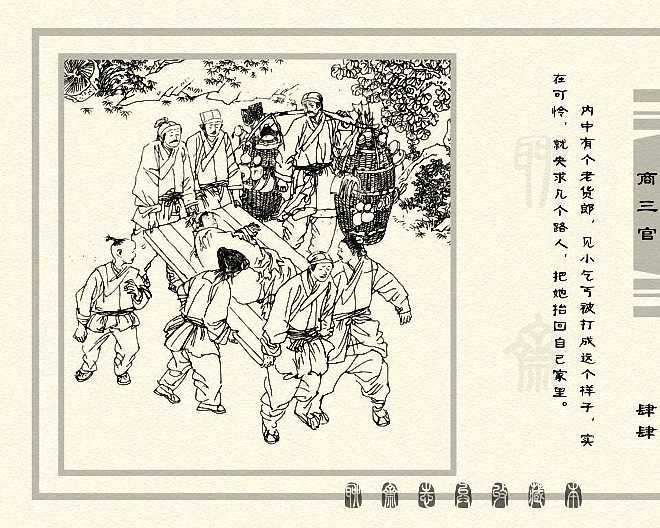 商三官
内中有个老货郎，见小乞丐被打成这个样子，实
在可怜，就央求几个路人，把她抬回自己家里。
肆肆
聊斋志异收藏本